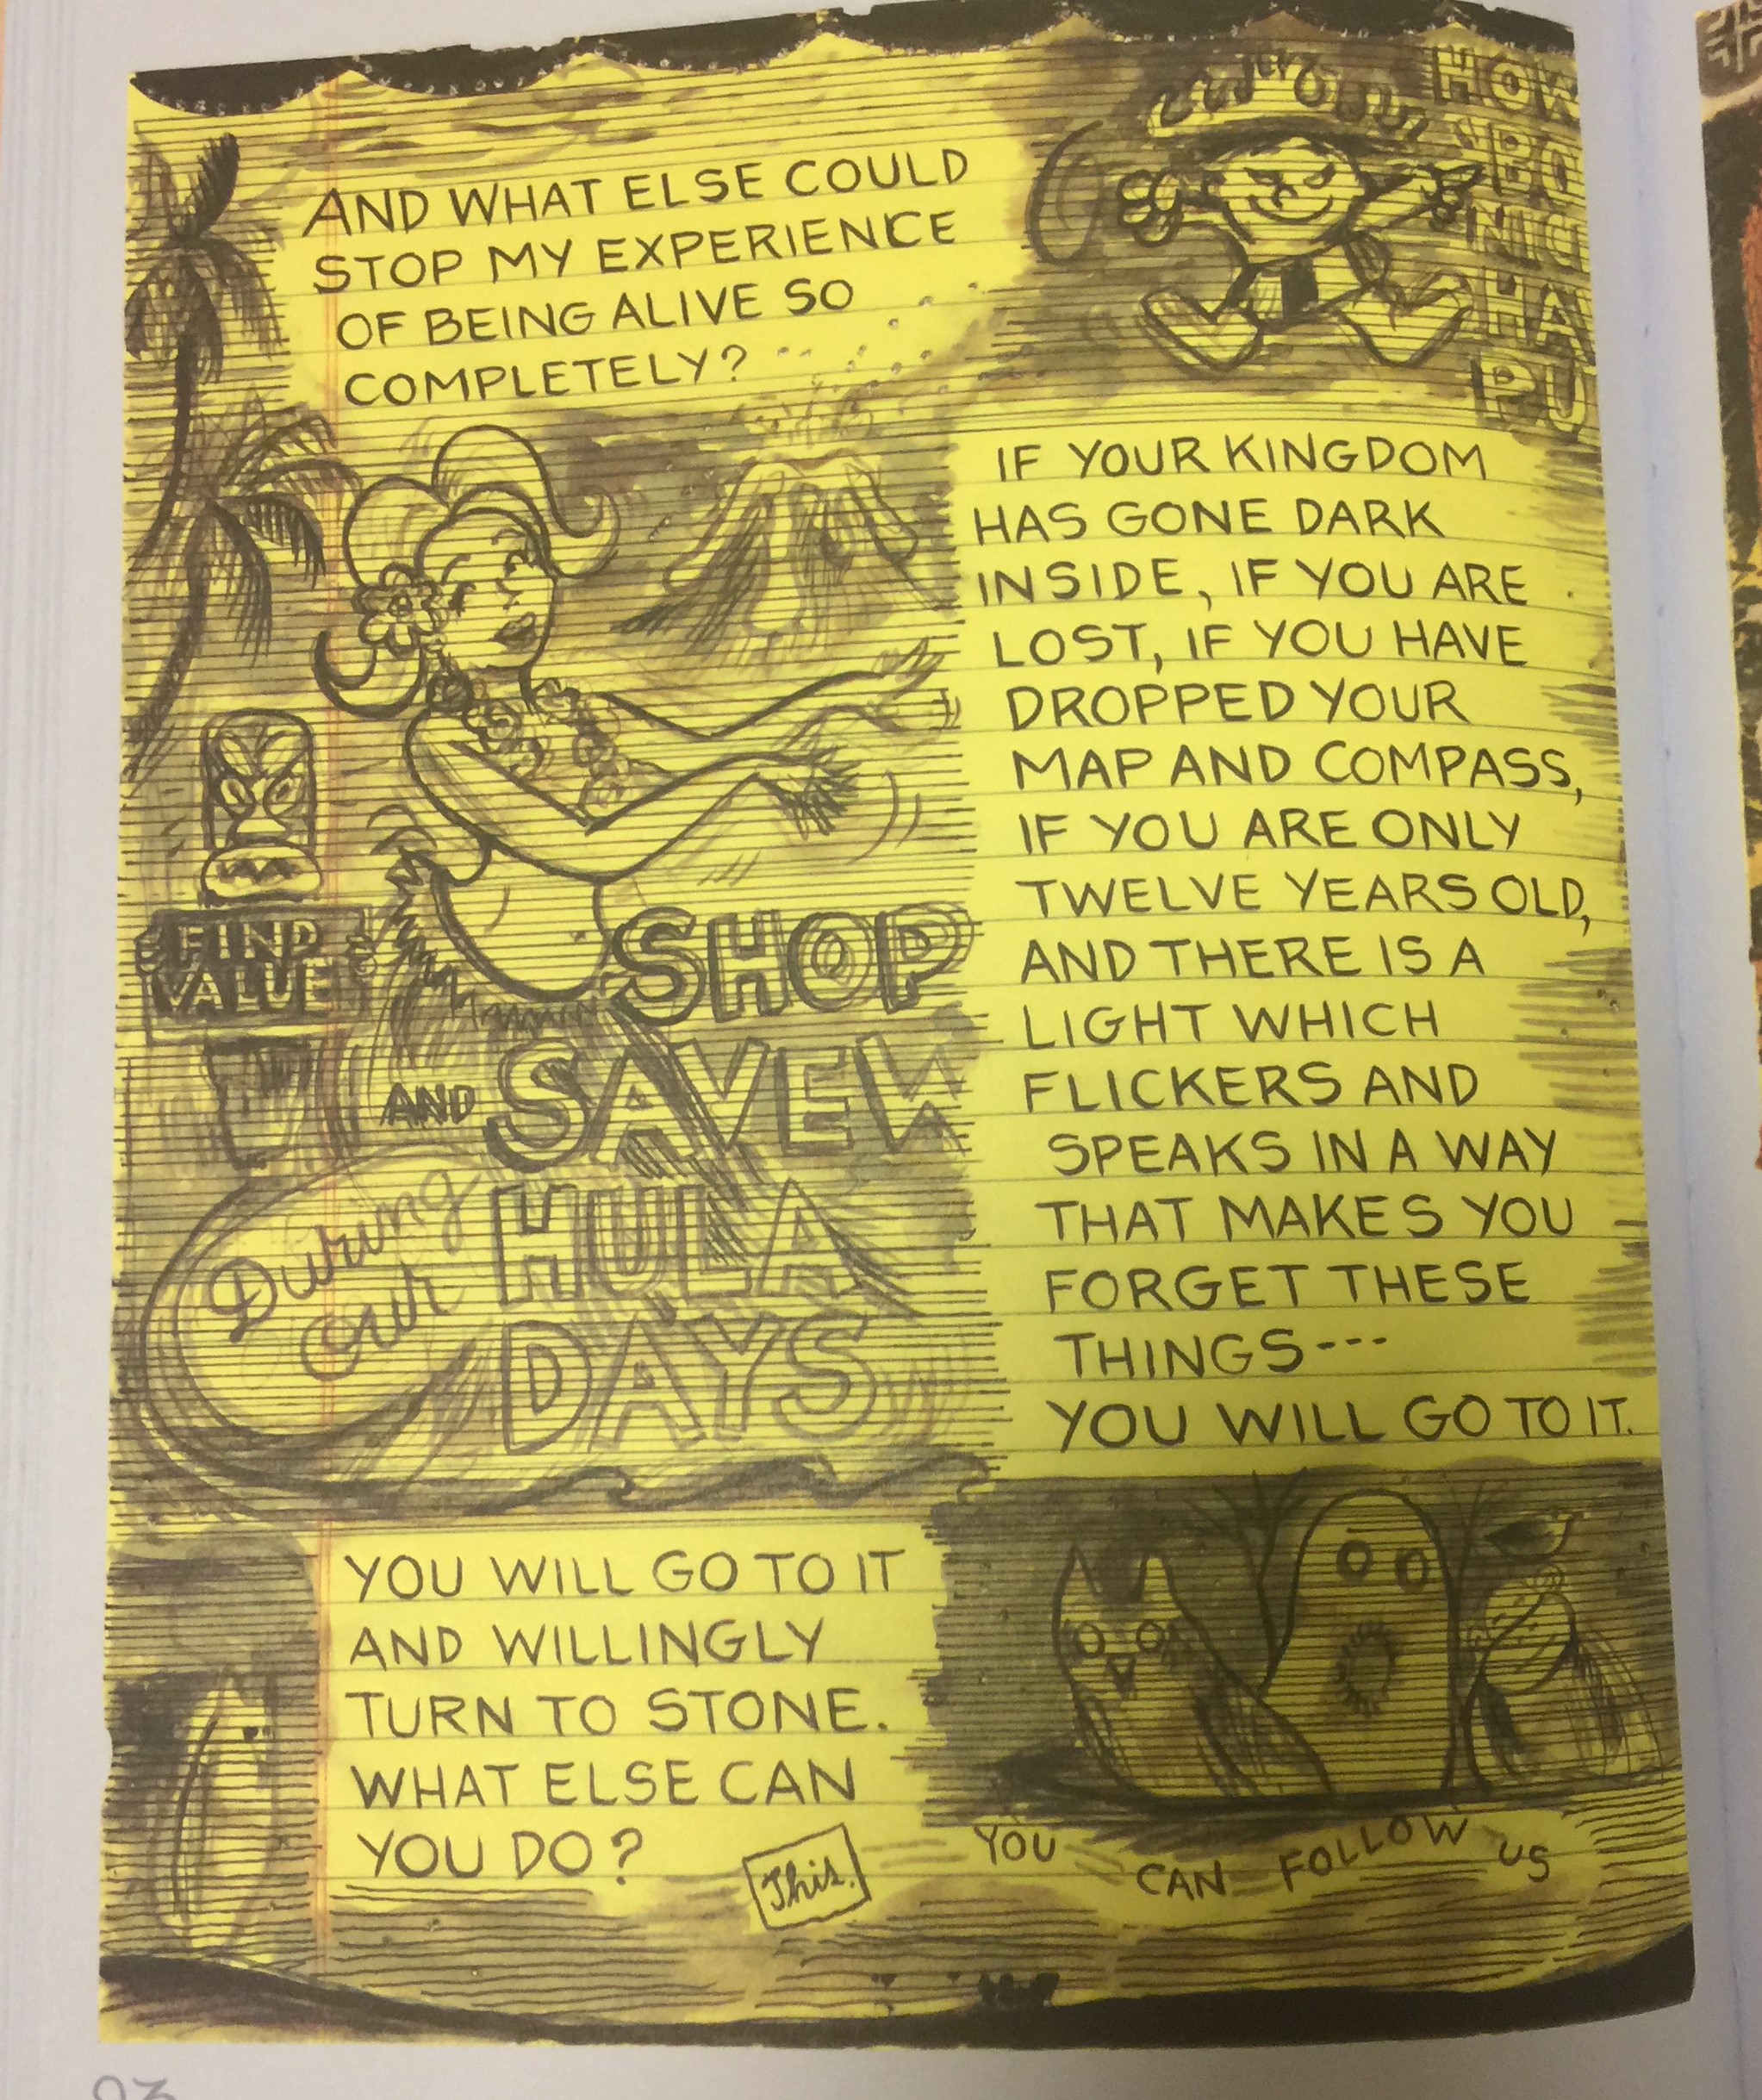 AND WHAT ELSE COULD
STOP MY EXPERIENCE
OF BEING ALIVE SO
COMPLETELY?
HOW
'BO
NIC
HA
PU
IF YOUR KINGDOM
HAS GONE DARK
INSIDE, IF YOU ARE
LOST, IF YOU HAVE
DROPPED YOUR
MAP AND COMPASS,
IF YOU ARE ONLY
TWELVE YEARS OLD,
AND THERE IS A
LIGHT WHICH
FLICKERS AND
SPEAKS IN A WAY
THAT MAKES YOU
FORGET THESE
THINGS---
YOU WILL GO TO IT.
FIND
VALUE
SHOP
AND SAVE W
During
our
HULA
DAYS
YOU WILL GO TO IT
AND WILLINGLY
TURN TO STONE.
WHAT ELSE CAN
YOU DO?
This.
YOU CAN FOLLOW US